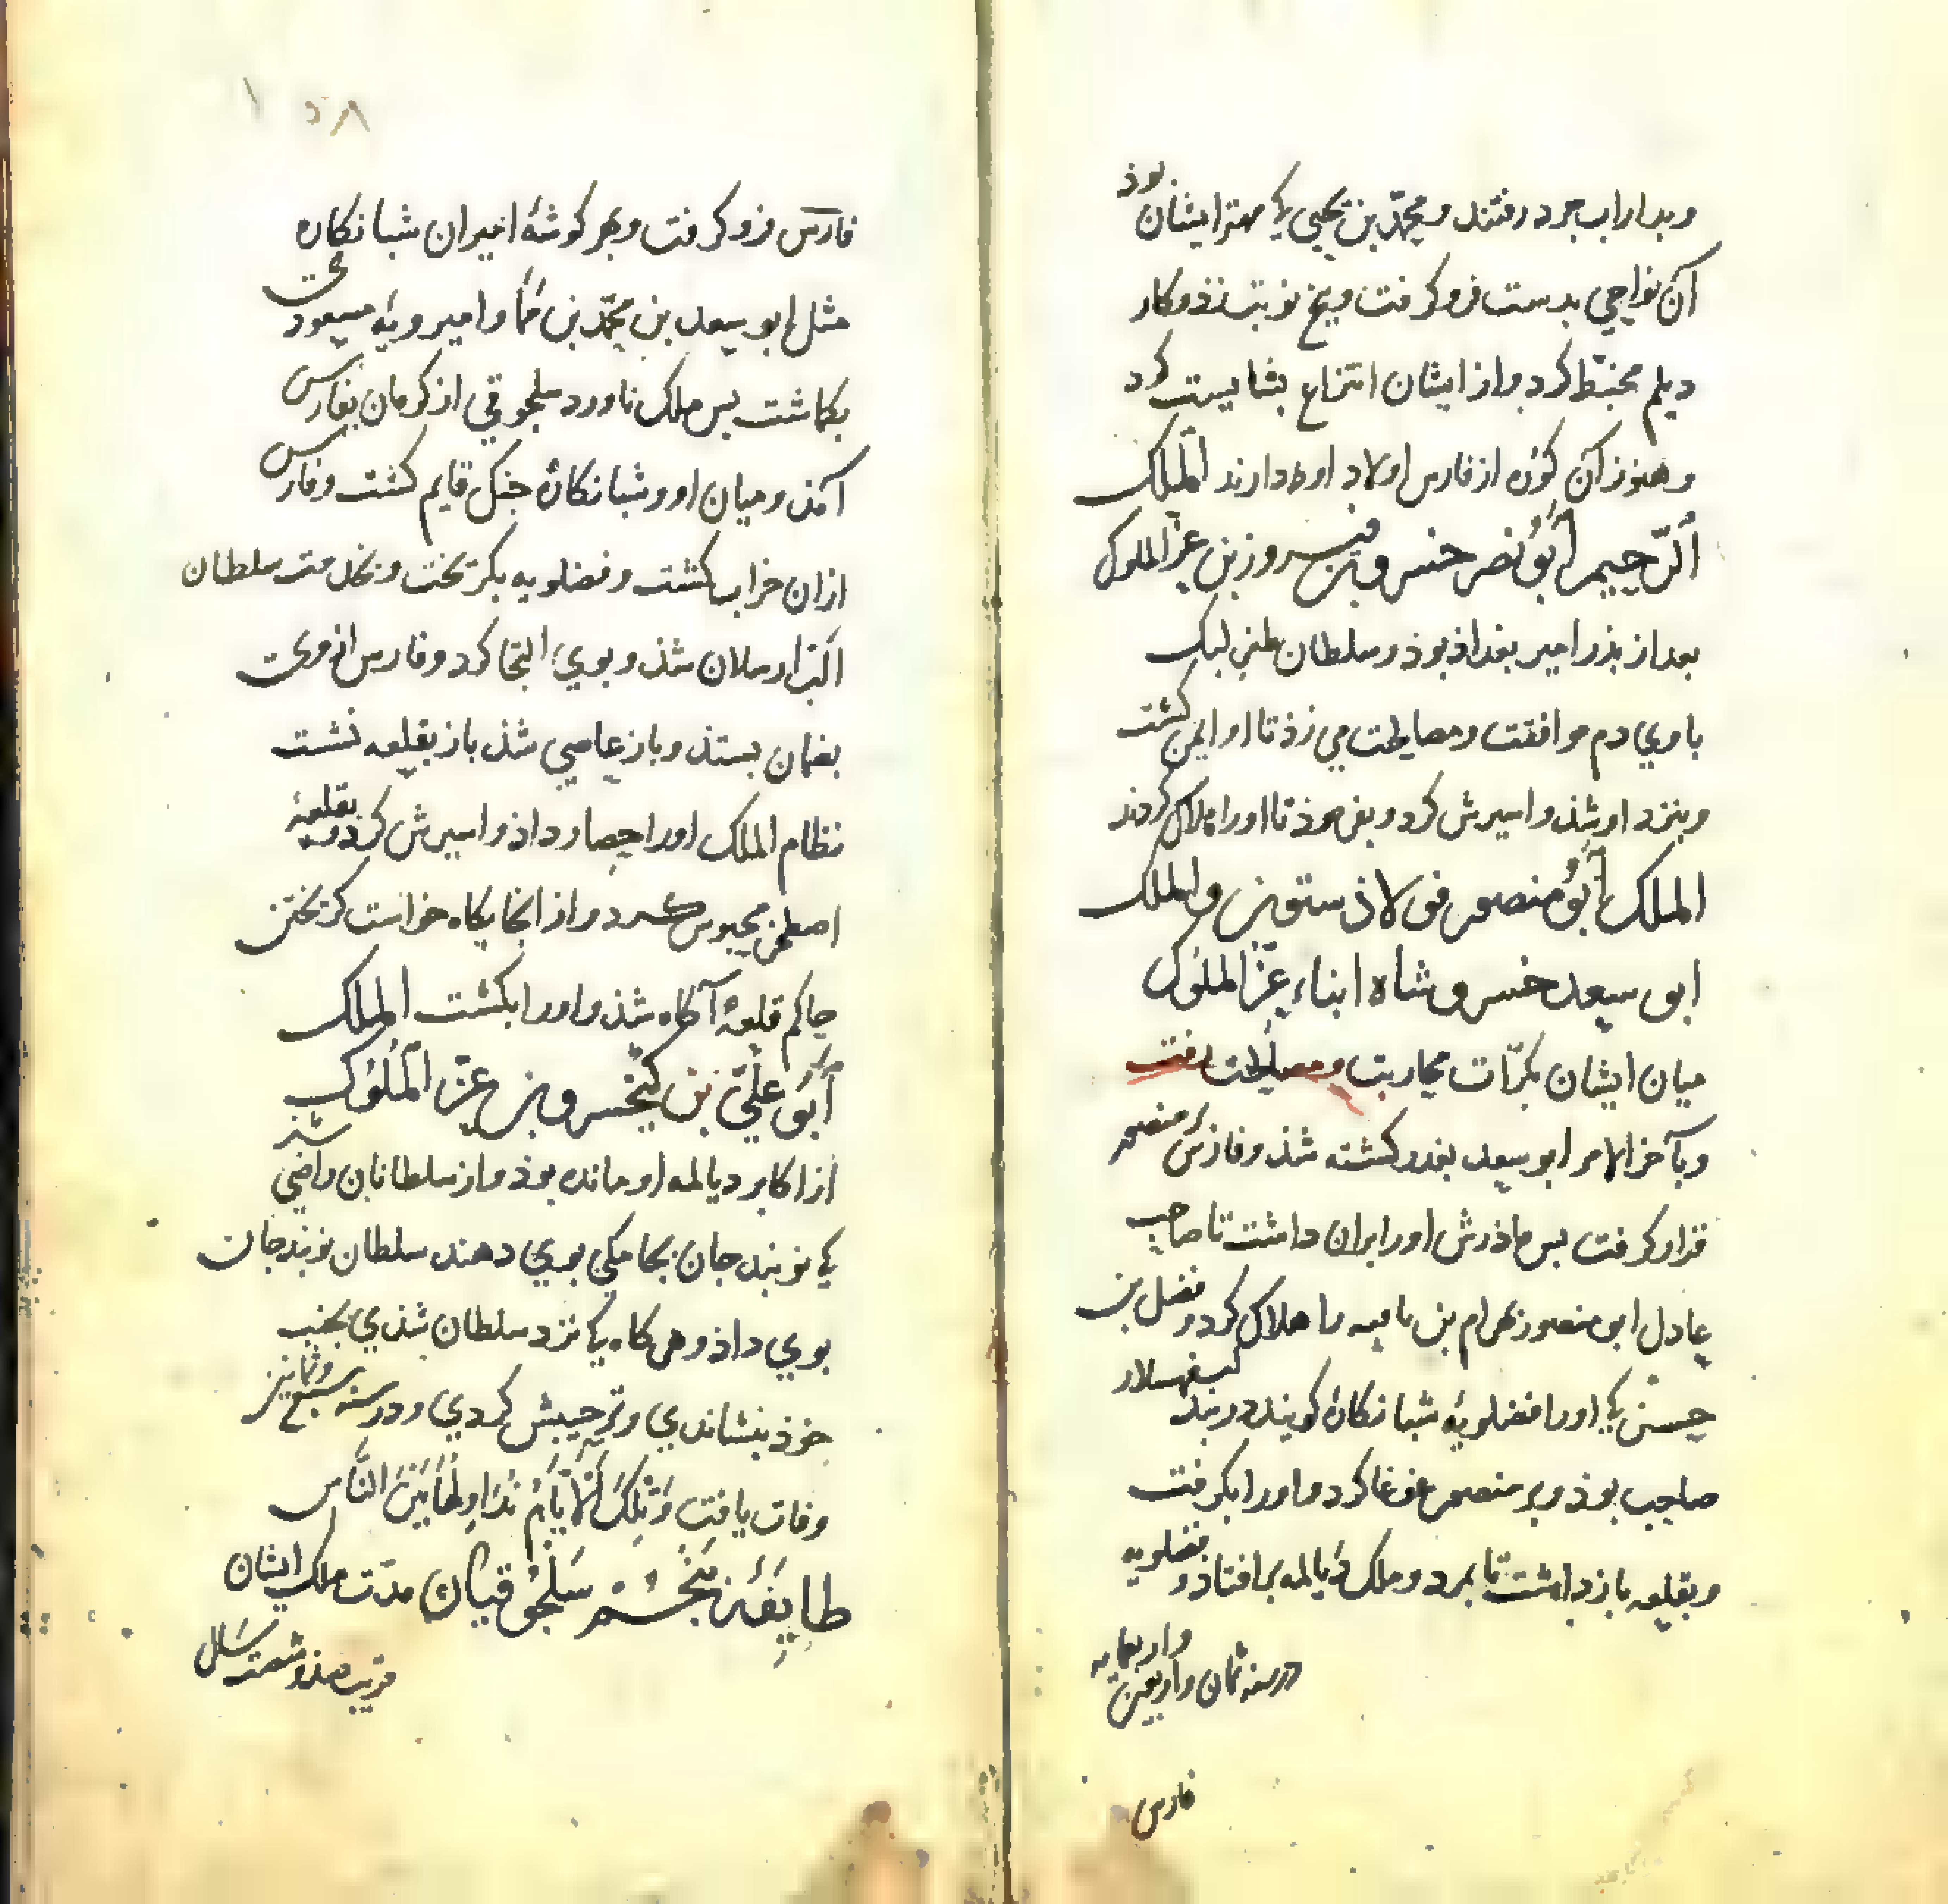 وبدارابجرد رفتند و محمد بن یحیی کی مهتر ایشان بوذ
آن نواحی بدست فرو کرفت و پنج نوبت بزد و کار
دیلم مخبّط کرد و از ایشان انتزاع بشایست کرد
و هنوز آن کوره از فارس اولاد او دارند الملک
الرّحیم أبو نصر خسرو فیروز بن عز الملوک
بعد از پذر امیر بغداذ بوذ و سلطان طغرلبک
با وی دم موافقت و مصالحت می زذ تا او ایمن کشت
و بنزد او شذ و اسیرش کرد و بفرموذ تا او را هلاک کردند
الملک أبو منصور فولاذ ستون و الملک
ابو سعد خسرو شاه ابناء عزّ الملوک
میان ایشان بکرّات محاربت و مصالحت رفت
و بآخر الامر ابو سعد بغدر کشته شذ و فارس بر منصور
قرار کرفت پس ماذرش او را بران داشت تا صاحب
عادل ابو منصور بهرام بن مافیه را هلاک کرد و فضل بن
حسن کی او را فضلویۀ شبانکاره کویند در بند اسفهسلار
صاحب بوذ و بر منصور غوغا کرد و او را بکرفت
و بقلعه باز داشت تا بمرد و ملک دیالمه بر افتاد و فضلویه
در سنه ثمان و اربعین و اربعمایه
فارس
۱۵۸
فارس فرو کرفت و بهر کوشۀ امیران شبانکاره
مثل ابو سعد بن محمّد بن مما و امیرویۀ مسعودی
بکماشت پس ملک قاورد سلجوقی از کرمان بفارس
آمذ و میان او و شبانکاره جنک قایم کشت و فارس
ازان خراب کشت و فضلویه بکریخت و بخدمت سلطان
الب ارسلان شذ و بوی التجا کرد و فارس از وی
بضمان بستذ و باز عاصی شذ باز بقلعه نشست
نظام الملک او را حصار داذ و اسیرش کرد و بقلعۀ
اصطخر محبوس کرد و از انجایکاه خواست کریختن
حاکم قلعه آکاه شذ و او را بکشت الملک
أبو علیّ بن کیخسرو بن عزّ الملوک
از اکابر دیالمه او مانده بوذ و از سلطانان راضی شذ
کی نوبندجان بجامکی بوی دهند سلطان نوبندجان
بوی داذ و هر کاه کی نزد سلطان شذی بجنب
خوذ بنشاندی و ترحیبش کردی و در سنه سبع و ثمانین
وفات یافت وَتِلْكَ الْأَيَّامُ نُدَاوِلُهَا بَيْنَ النَّاسِ
طایفۀ پنجم سلجوقیان مدّت ملک ایشان
قریب صذ و شصت سال